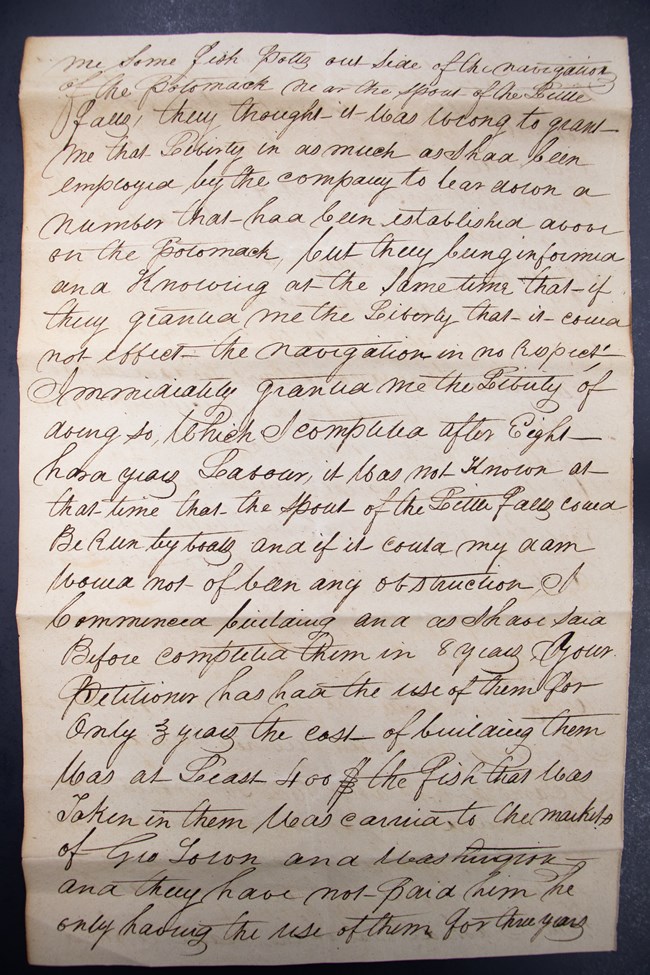 me some fish Potts out side of the navigation
of the Potomack near the spout of the Little
falls, they thought it was wrong to grant
me that Liberty in as much as I had been
employed by the company to tear down a
number that had been established above
on the Potomack, but they being informed
and Knowing at the same time that if
they granted me the Liberty that it could
not effect the navigation in no Respect
Immidiately granted me the Liberty of
doing so, Which I completed after Eight
hard years Labour, it was not Known at
that time that the spout of the Little falls could
Be Run by boats and if it could my dam
would not of been any obstruction, I
Commenced building and as I have said
Before completed them in 8 years, Your
Petitioner has had the use of them for
Only 3 years the cost of building them
Was at Least 400 $ the Fish that was
Taken in them was carried to the markets
of Geo Town and Washington
and they have not paid him he
only having the use of them for three years